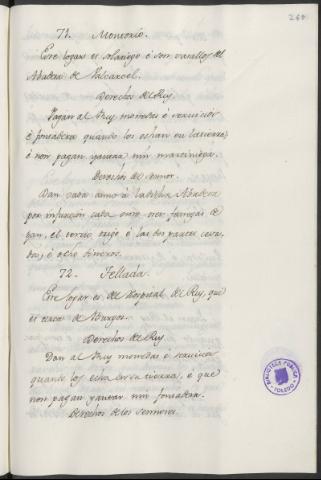 260
71. Moncorio.
Este logar es solariego é son vasallos del
Abadesa de Valcarcel.
Derechos del Rey.
Pagan al Rey monedas é servicios
é fonsadera quando los echan en la tierra,
é non pagan yantar nin martiniega.
Derechos del sennor.
Dan cada anno á la dicha Abadesa
por infurcion cada uno tres fanegas de
pan, el tercio trigo é las dos partes ceva-
da, é ocho dineros.
72. Fellada.
Este logar es del Hospital del Rey, que
es cerca de Burgos.
Derechos del Rey.
Dan al Rey monedas é servicios
quando los echa en la tierra, é que
non pagan yantar nin fonsadera.
Derechos de los sennores.
BIBLIOTECA PUBLICA
TOLEDO